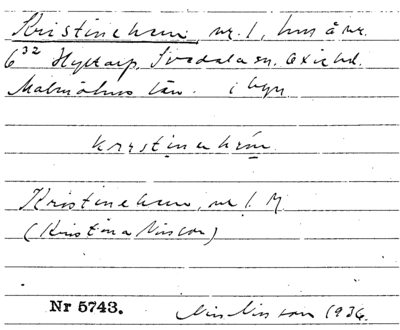 Kristinehem, nr. 1, hus å nr.
6³² Hyltarp, Svedala sn. Oxie hd.
Malmöhus län. i byn.
krɩstinahem
Kristinehem, nr 1. M
(Kristina Nilsson)
Nr 5743. Nils Nilsson 1936.